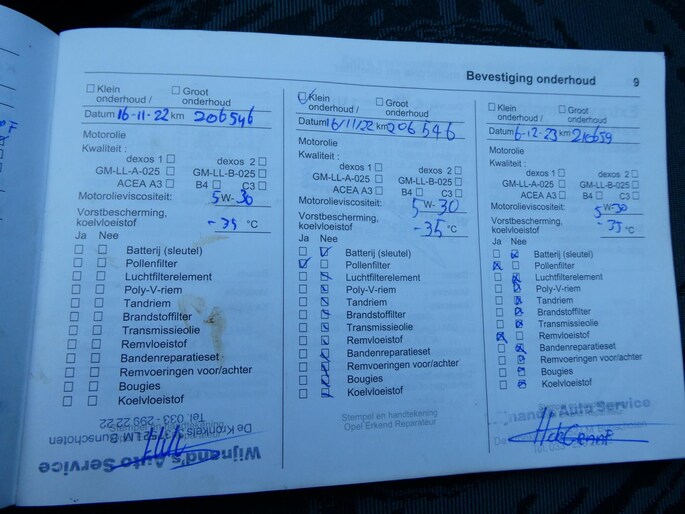 Bevestiging onderhoud 9
Klein onderhoud /
Groot onderhoud
Datum 16-11-22 km 206546
Motorolie
Kwaliteit :
dexos 1 dexos 2
GM-LL-A-025 GM-LL-B-025
ACEA A3 B4 C3
Motorolieviscositeit: 5 W- 30
Vorstbescherming, koelvloeistof -35 °C
Ja Nee
Batterij (sleutel)
Pollenfilter
Luchtfilterelement
Poly-V-riem
Tandriem
Brandstoffilter
Transmissieolie
Remvloeistof
Bandenreparatieset
Remvoeringen voor/achter
Bougies
Koelvloeistof
Stempel en handtekening
Wijnand's Auto Service
De Kronkels
Bunschoten
Tel. 033 - 299 22 22
Klein onderhoud /
Groot onderhoud
Datum 16/11/22 km 206546
Motorolie
Kwaliteit :
dexos 1 dexos 2
GM-LL-A-025 GM-LL-B-025
ACEA A3 B4 C3
Motorolieviscositeit: 5 W- 30
Vorstbescherming, koelvloeistof -35 °C
Ja Nee
Batterij (sleutel)
Pollenfilter
Luchtfilterelement
Poly-V-riem
Tandriem
Brandstoffilter
Transmissieolie
Remvloeistof
Bandenreparatieset
Remvoeringen voor/achter
Bougies
Koelvloeistof
Stempel en handtekening
Opel Erkend Reparateur
Klein onderhoud /
Groot onderhoud
Datum 6-12-23 km
Motorolie
Kwaliteit :
dexos 1 dexos 2
GM-LL-A-025 GM-LL-B-025
ACEA A3 B4 C3
Motorolieviscositeit: 5 W-30
Vorstbescherming, koelvloeistof -35 °C
Ja Nee
Batterij (sleutel)
Pollenfilter
Luchtfilterelement
Poly-V-riem
Tandriem
Brandstoffilter
Transmissieolie
Remvloeistof
Bandenreparatieset
Remvoeringen voor/achter
Bougies
Koelvloeistof
Auto Service